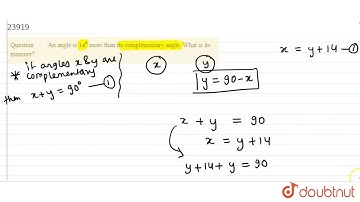 23919
Question An angle is 14° more than its complementary angle. What is its
measure?
* if angles x & y are
complementary
then x+y = 90° — ①
x y
y = 90-x
x = y+14 — ①
x + y = 90
x = y+14
y+14+y = 90
doubtnut